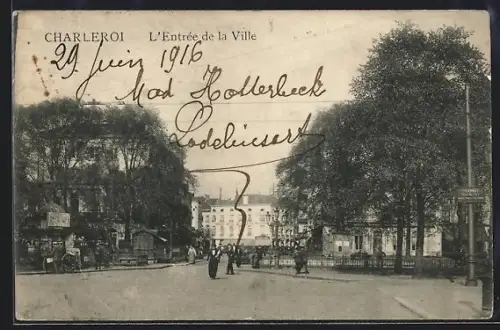 CHARLEROI L'Entrée de la Ville
29 Juin 1916
Mad Hollerbeck
Lodelinsart